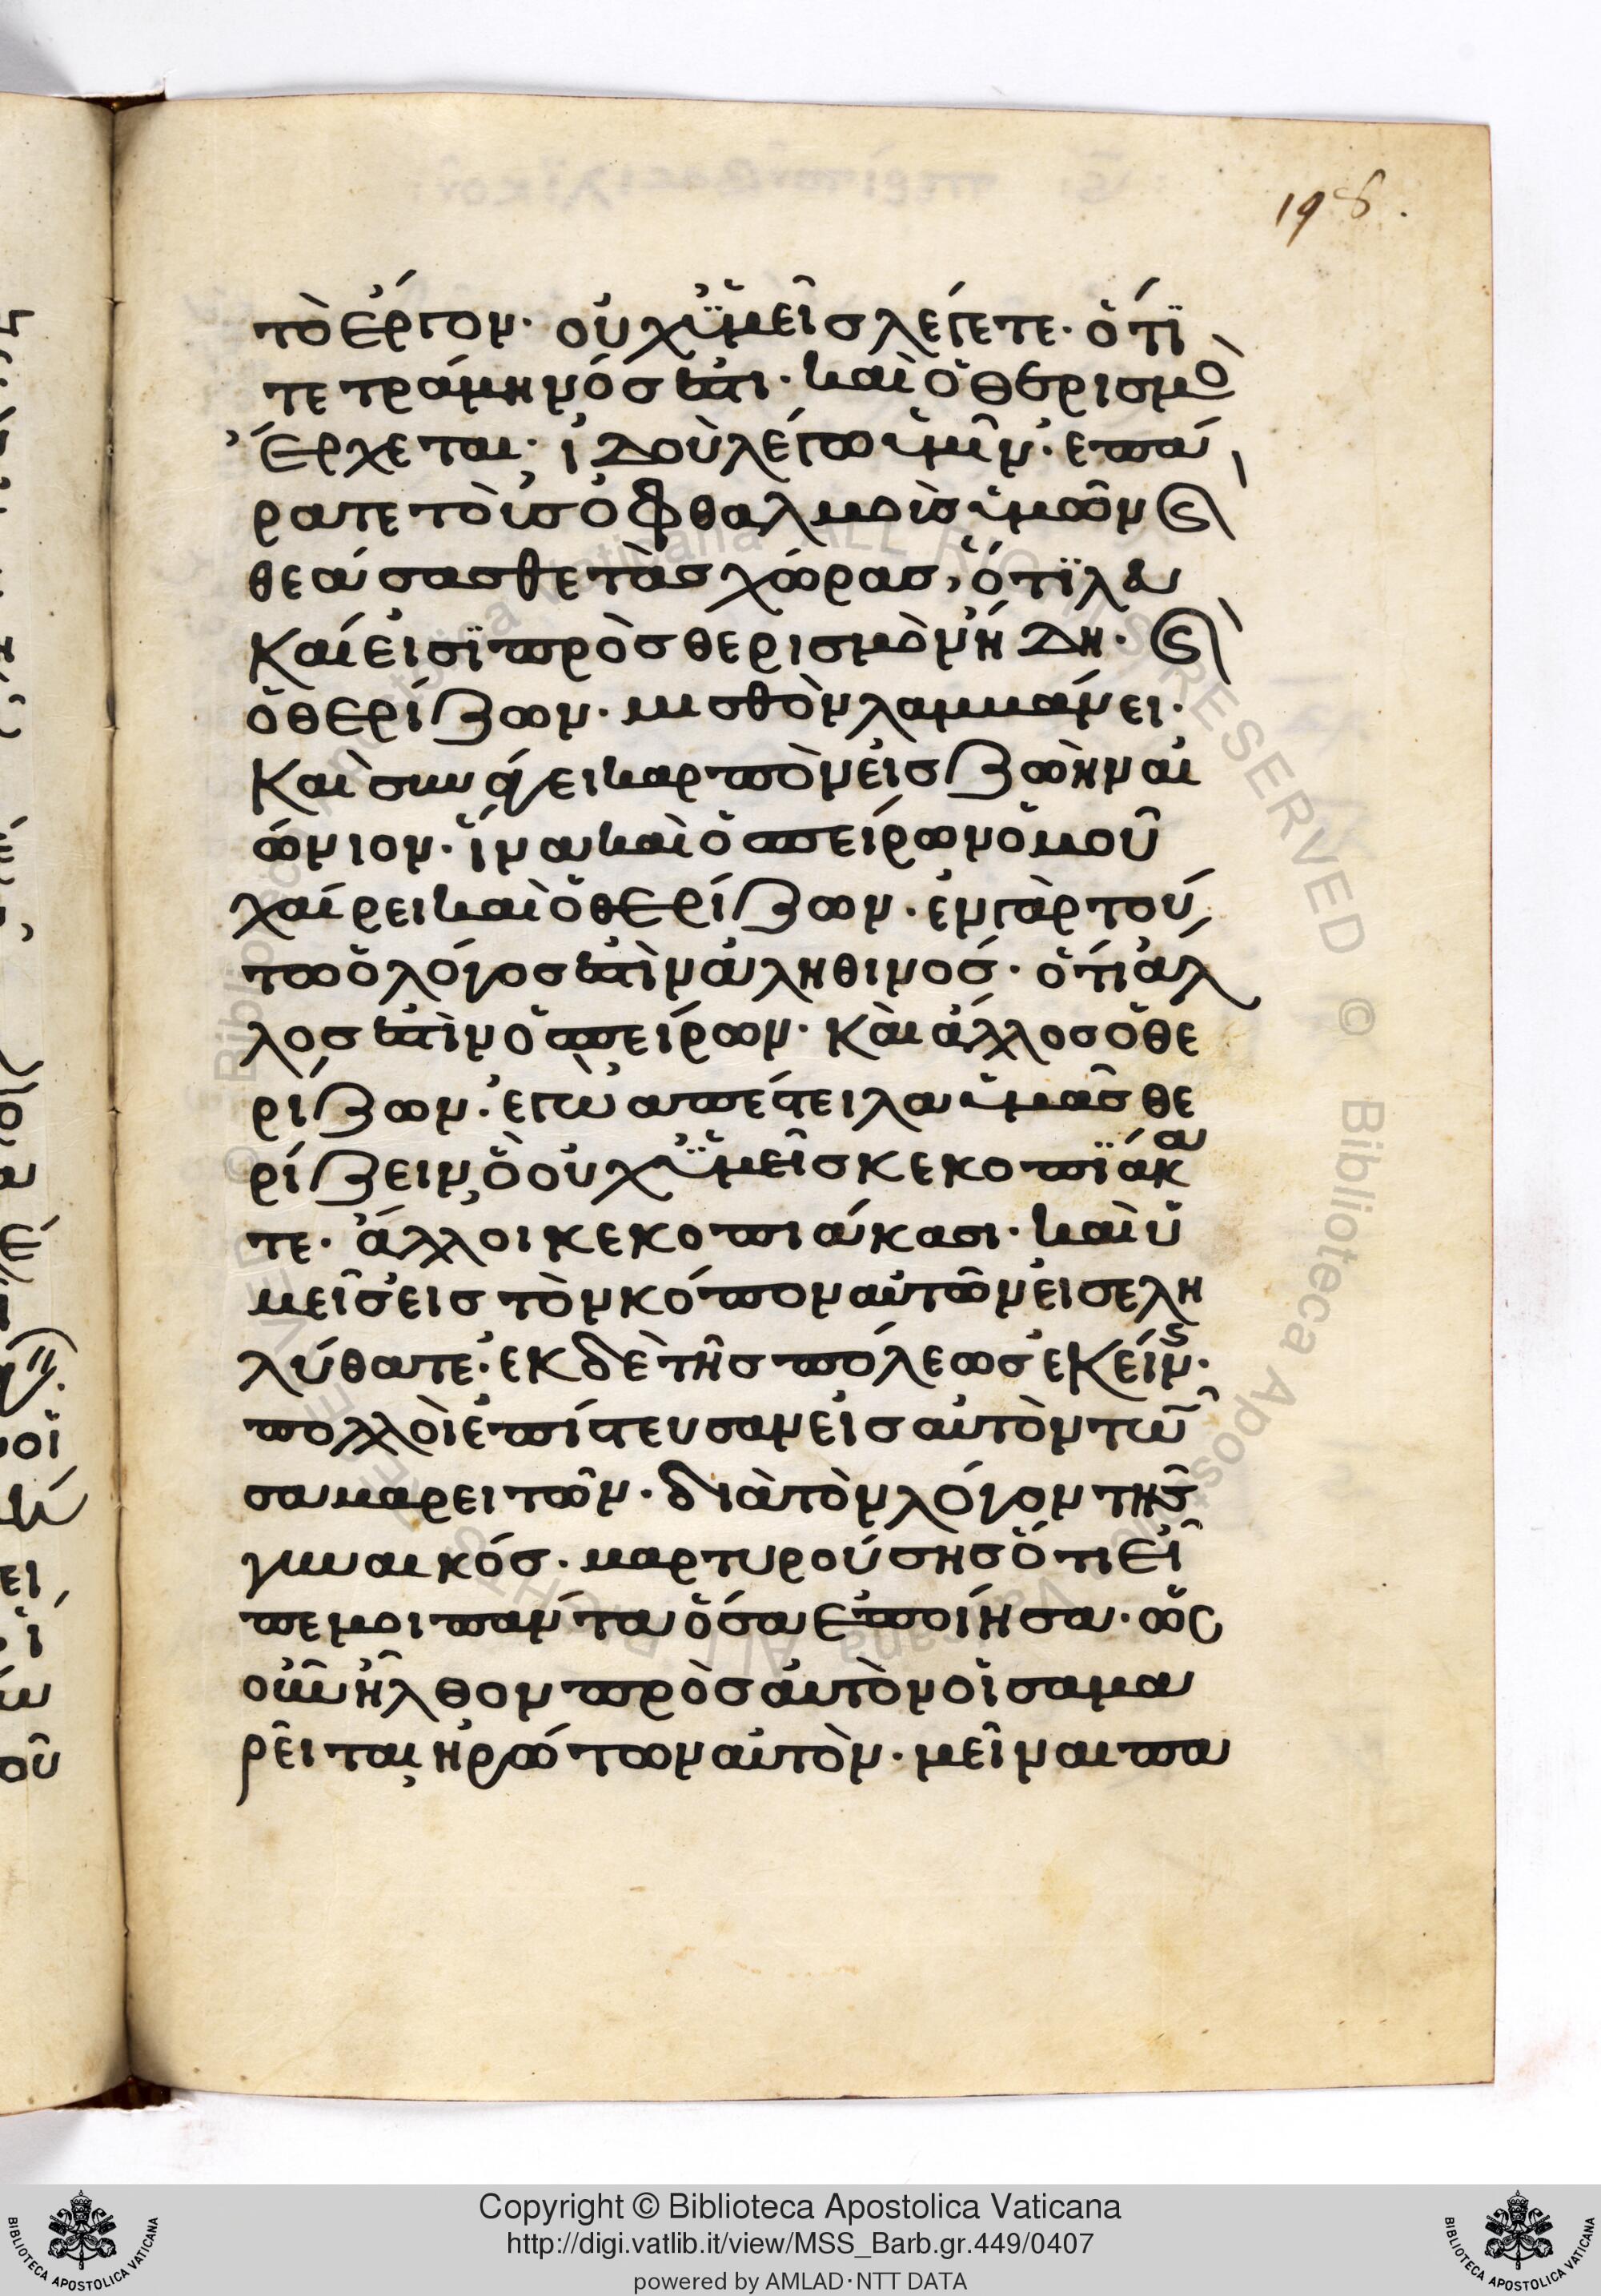 198.
τὸ ἔργον· οὐχ ὑμεῖς λέγετε· ὅτϊ
τετράμηνός ἐστι· καὶ ὁ θερισμὸ
ἔρχεται· ἰδοὺ λέγω ὑμῖν· ἐπά
ρατε τοὺς ὀφθαλμοὺς ὑμῶν (καὶ)
θεάσασθε τὰς χώρας, ὅτϊ λευ
καί εἰσϊ πρὸς θερισμὸν ἤδη· (καὶ)
ὁ θερίζων· μισθὸν λαμβάνει·
καὶ συνάγει καρπὸν εἰς ζωὴν αἰ
ώνιον· ἵνα καὶ ὁ σπείρων ὁμοῦ
χαίρει καὶ ὁ θερίζων· ἐν γὰρ τού
τω ὁ λόγος ἐστὶν ἀληθινός· ὅτι ἀλ
λος ἐστὶν ὁ σπείρων· καὶ ἄλλος ὁ θε
ρίζων· ἐγὼ ἀπέστειλα ὑμᾶς θε
ρίζειν, ὃ οὐχ ὑμεῖς κεκοπϊάκα
τε· ἄλλοι κεκοπιάκασι· καὶ ὑ
μεῖς εἰς τὸν κόπον αὐτῶν εἰσελη
λύθατε· ἐκ δὲ τῆς πόλεως ἐκείν(ης)·
πολλοὶ ἐπίστευσαν εἰς αὐτὸν τῶ
σαμαρειτῶν· διὰ τὸν λόγον τῆς
γυναικός· μαρτυρούσης ὅτι εἶ
πέ μοι πάντα ὅσα ἐποίησα· ὡς
οὖν ἦλθον πρὸς αὐτὸν οἱ σαμα
ρεῖται, ἠρώτων αὐτὸν· μεῖναι πα
Copyright © Biblioteca Apostolica Vaticana
http://digi.vatlib.it/view/MSS_Barb.gr.449/0407
powered by AMLAD·NTT DATA
BIBLIOTECA APOSTOLICA VATICANA
BIBLIOTECA APOSTOLICA VATICANA